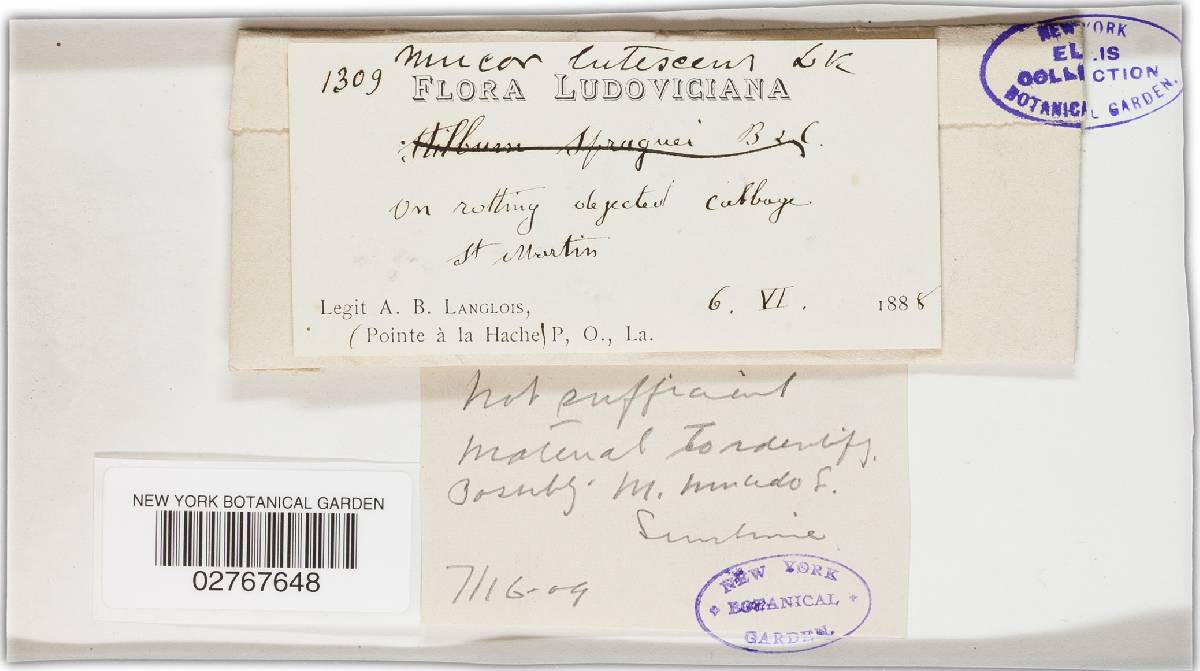 Mucor lutescens Lk
1309
FLORA LUDOVICIANA
Stilbum Spraguei B & C.
On rotting dejected cabbage
St Martin
Legit A. B. LANGLOIS,
6. VI. 1888
(Pointe à la Hache) P, O., La.
NEW YORK
ELLIS
COLLECTION
BOTANICAL GARDEN.
Not sufficient
material to identify.
Possibly M. mucedo L.
7/16-09
NEW YORK
BOTANICAL
GARDEN.
NEW YORK BOTANICAL GARDEN
02767648